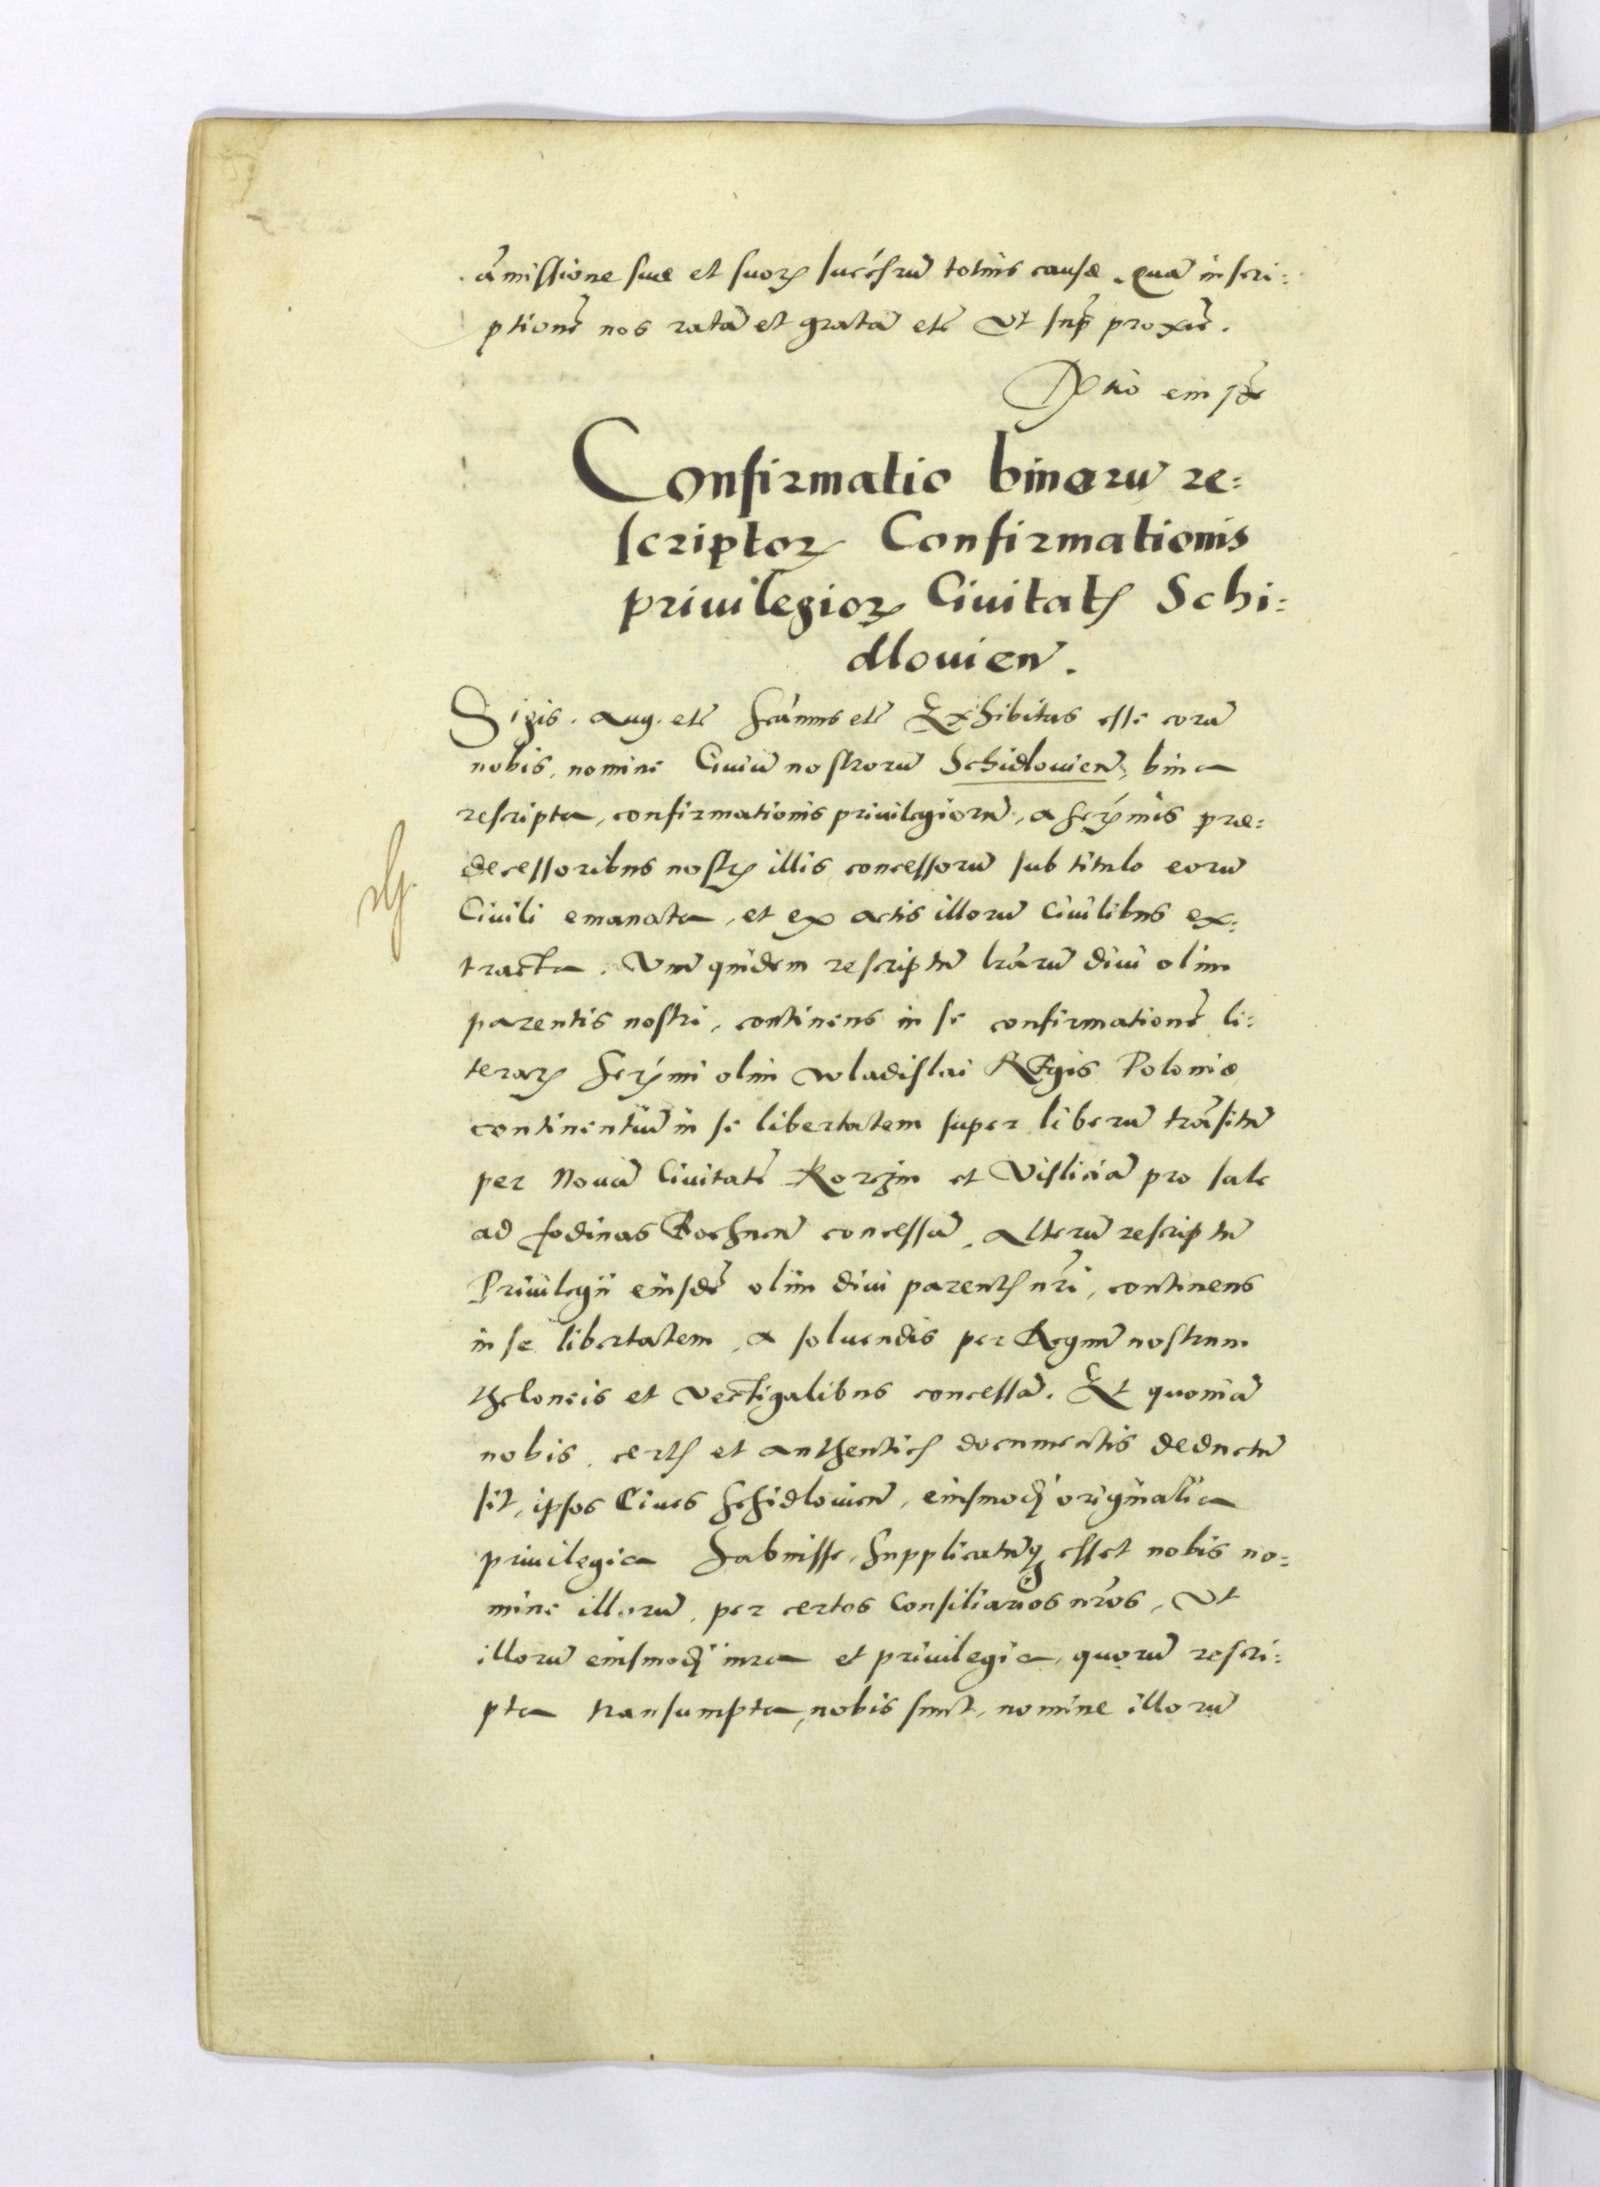 am̃issione suæ et suorꝝ succẽsrũ totius causæ. Quã inscri:
ptionẽ nos ratã et gratã etc̃ Vt sup̃ proxiẽ.
Confirmatio binorũ re:
scriptorꝝ Confirmationis
priuilegiorꝝ Ciuitatꝭ Schi:
dlouien̄.
Sigis. Aug. etc̃ Scãmus etc̃ Exhibitas esse corã
nobis, nomine Ciuiũ nostrorũ Schidlouien̄, bina
rescripta, confirmationis priuilegiorũ, a Serẽmis præ:
decessoribus nostrꝭ illis concessorũ sub titulo eorũ
Ciuili emanata, et ex actis illorũ Ciuilibus ex:
tracta. Vnũ quidem rescriptũ lrãrũ diui olim
parentis nostri, continens in se confirmationẽ li:
terarꝝ Serẽmi olim Wladislai REgis Poloniæ
continentiũ in se libertatem super liberũ trãsitũ
per Nouã Ciuitatẽ Korczin et Visliciã pro sale
ad fodinas Bochnen̄ concessã, Alterũ rescriptũ
Priuilegii eiusdẽ olim diui parentꝭ nr̃i, continens
in se libertatem, a soluendis per Regnũ nostrum
theloneis et vectigalibus concessã. Et quoniã
nobis, certꝭ et authenticꝭ documentis deductũ
sit, ipsos Ciues Schidlouien̄, eiusmodi originalia
priuilegia habuisse, Supplicatũqꝫ esset nobis no:
mine illorũ, per certos Consiliarios nr̃os, Vt
illorũ eiusmodi iura et priuilegia, quorũ rescri:
pta transumpta, nobis sunt, nomine illorũ